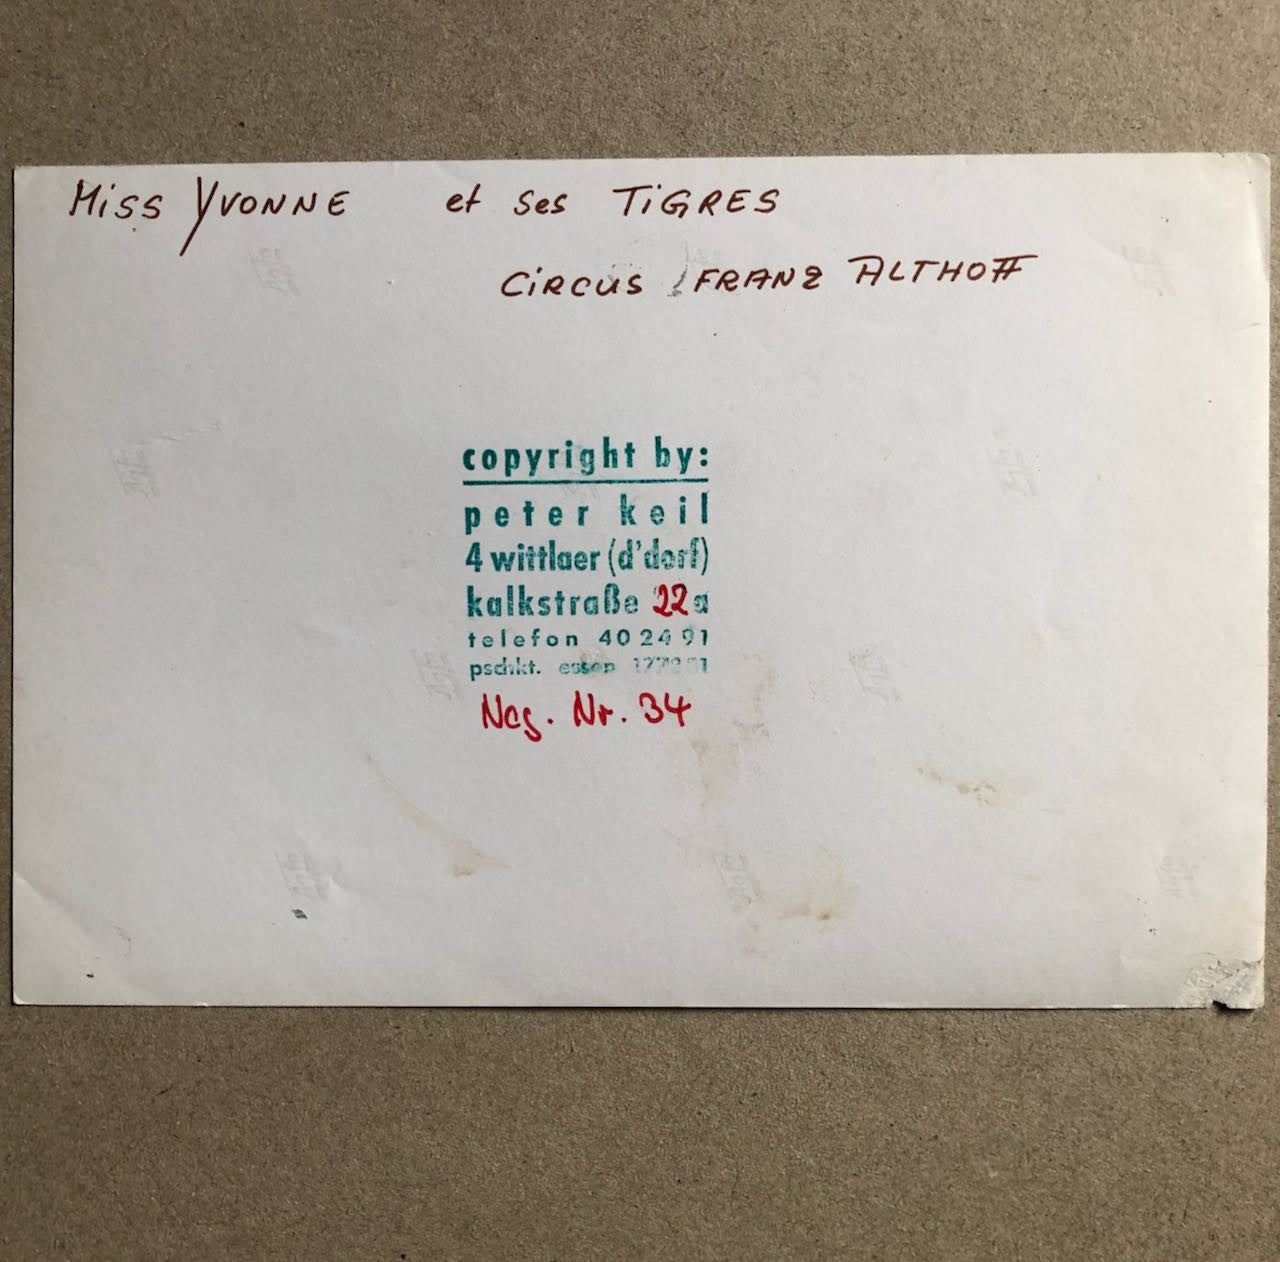 Miss YVONNE et ses TiGRES
CiRCUS FRANZ ALTHOFF
copyright by:
peter keil
4 wittlaer (d'dorf)
kalkstraße 22a
telefon 40 24 91
pschkt. essen
Neg. Nr. 34